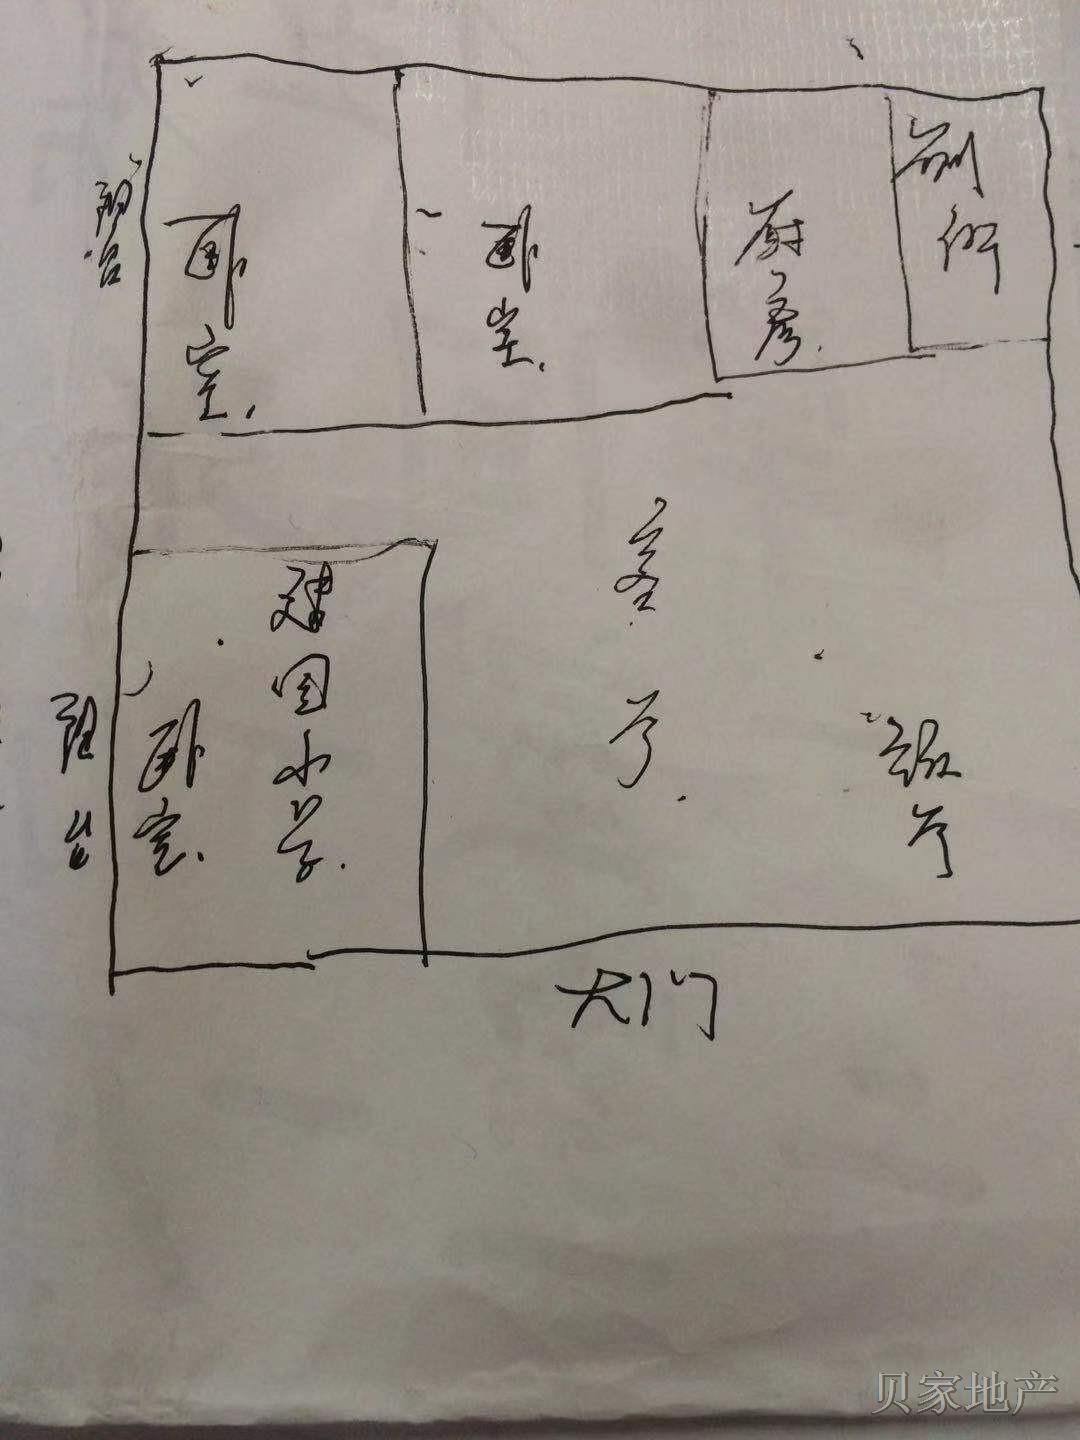 阳台
卧室
卧室
厨房
厕所
客厅
阳台
卧室
建国小学
饭厅
大门
贝家地产